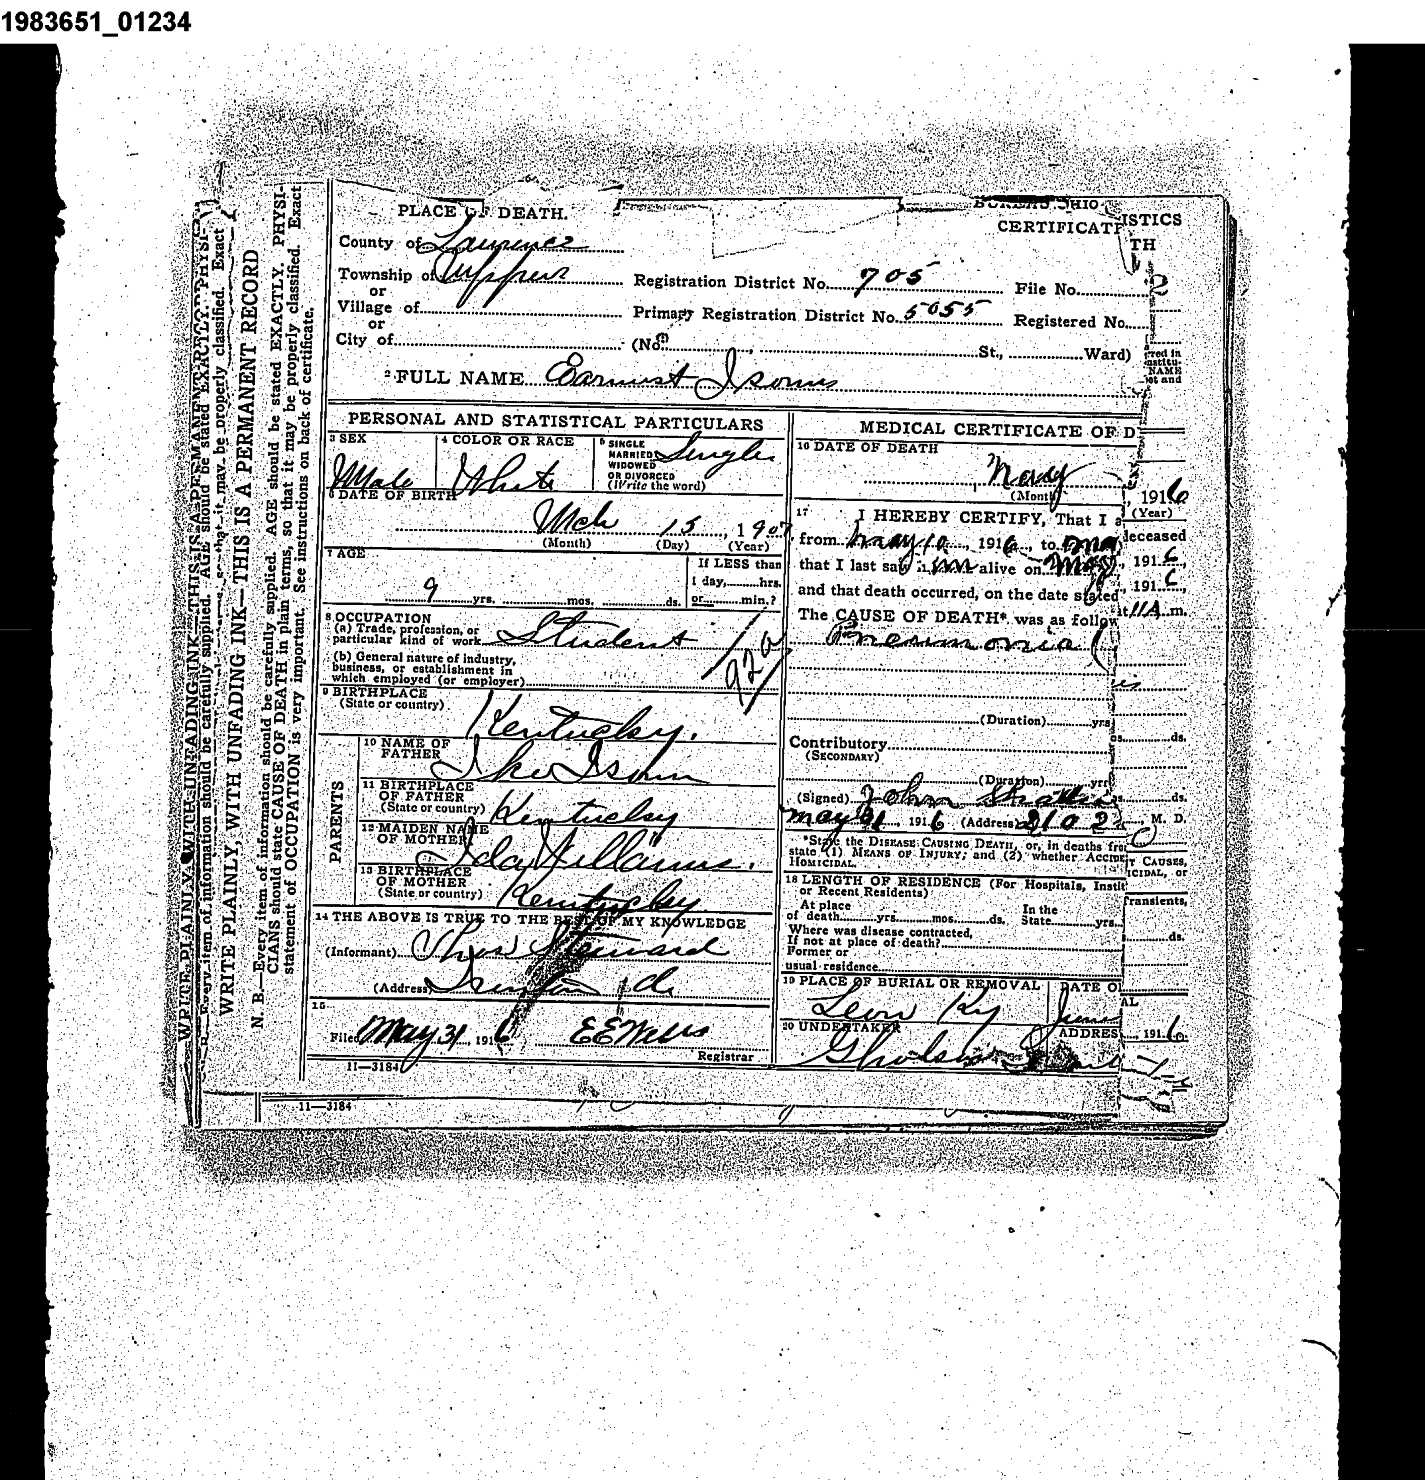 1983651_01234
PLACE OF DEATH.
County of Lawrence
Township of Upper
or
Village of
or
City of
BUREAU OHIO ISTICS
CERTIFICAT TH
Registration District No. 705 File No. 2
Primary Registration District No. 5055 Registered No.
(No. , St., Ward)
2 FULL NAME Earnust Isoms
PERSONAL AND STATISTICAL PARTICULARS
3 SEX
Male
4 COLOR OR RACE
White
5 SINGLE
MARRIED
WIDOWED
OR DIVORCED
(Write the word)
Single
6 DATE OF BIRTH
Mch 15, 1907
(Month) (Day) (Year)
7 AGE
9 yrs. mos. ds.
If LESS than
1 day, hrs.
or min.?
8 OCCUPATION
(a) Trade, profession, or
particular kind of work Student
(b) General nature of industry,
business, or establishment in
which employed (or employer)
92a
9 BIRTHPLACE
(State or country)
Kentucky.
PARENTS
10 NAME OF
FATHER
Ike Isom
11 BIRTHPLACE
OF FATHER
(State or country)
Kentucky
12 MAIDEN NAME
OF MOTHER
Ida Williams.
13 BIRTHPLACE
OF MOTHER
(State or country)
Kentucky
14 THE ABOVE IS TRUE TO THE BEST OF MY KNOWLEDGE
(Informant) Thos Steward
(Address)
15
Filed May 31, 1916 EEWells
Registrar
11—3184
11—3184
MEDICAL CERTIFICATE OF D
16 DATE OF DEATH
May , 1916
(Month) (Year)
17 I HEREBY CERTIFY, That I a deceased
from May 10, 1916, to Ma , 1916
that I last saw im alive on May , 1916
and that death occurred, on the date stated at 11A m.
The CAUSE OF DEATH* was as follow
Pneumonia
(Duration) yrs. ds.
Contributory
(SECONDARY)
(Duration) yrs. ds.
(Signed) John , M. D.
May 31, 1916 (Address) 2102
*State the DISEASE CAUSING DEATH, or, in deaths fro T CAUSES,
state (1) MEANS OF INJURY; and (2) whether ACCIDE ICIDAL, or
HOMICIDAL.
18 LENGTH OF RESIDENCE (For Hospitals, Instit Transients,
or Recent Residents)
At place In the
of death yrs. mos. ds. State yrs. ds.
Where was disease contracted,
If not at place of death?
Former or
usual residence
19 PLACE OF BURIAL OR REMOVAL
Leon Ky
DATE O AL
June , 1916
20 UNDERTAKER
ADDRES
WRITE PLAINLY, WITH UNFADING INK—THIS IS A PERMANENT RECORD
N. B.—Every item of information should be carefully supplied. AGE should be stated EXACTLY. PHYSI-
CIANS should state CAUSE OF DEATH in plain terms, so that it may be properly classified. Exact
statement of OCCUPATION is very important. See instructions on back of certificate.